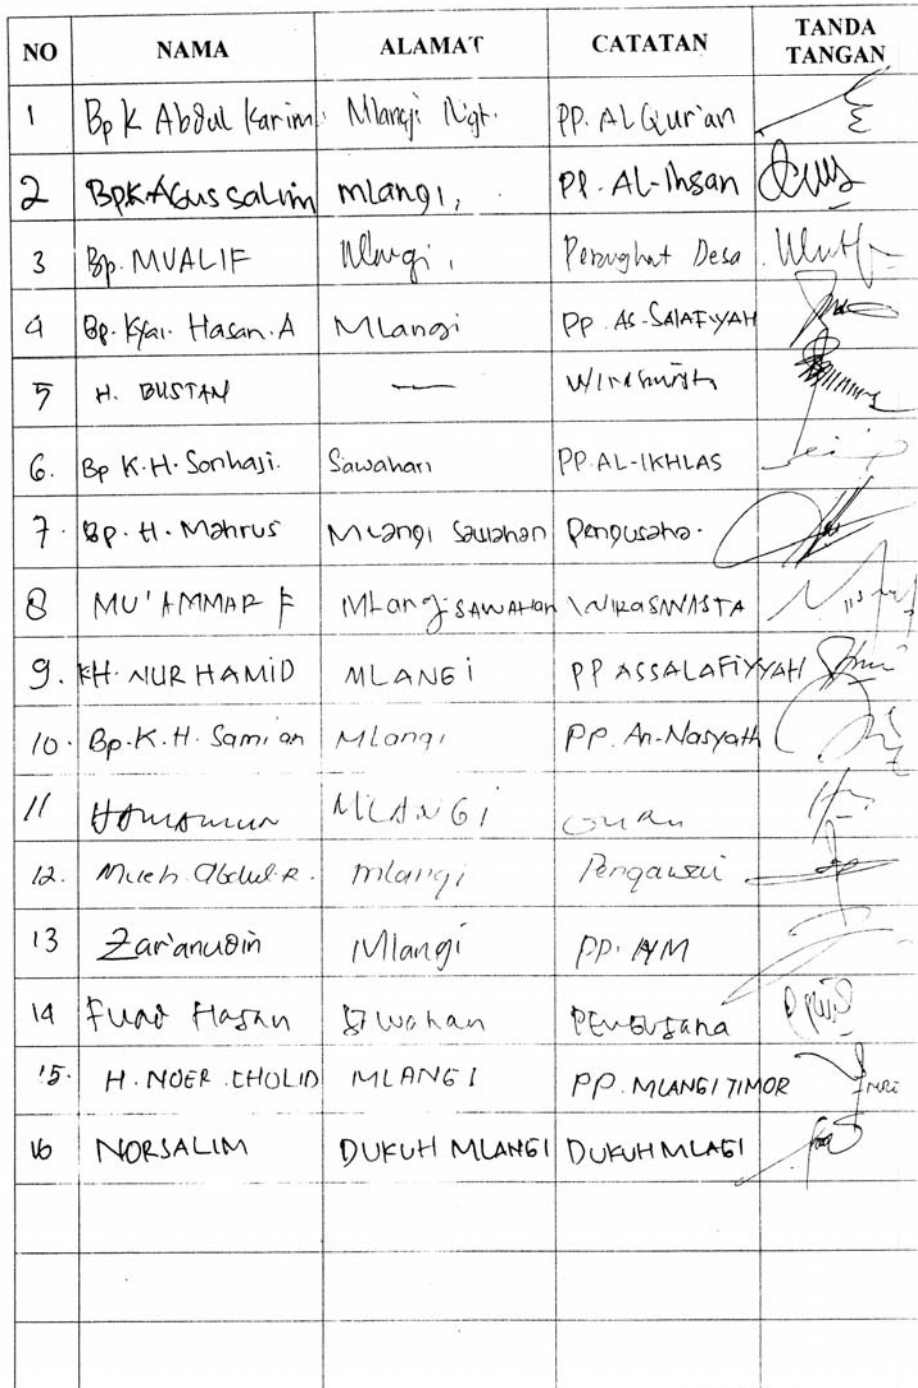 NO NAMA ALAMAT CATATAN TANDA TANGAN
1 Bp K Abdul Karim Mlangi Ngt. PP. AL Qur'an
2 BpK Agus salim mlangi, PP. AL-Ihsan
3 Bp. MUALIF Mlangi, Perangkat Desa
4 Bp. Kyai. Hasan. A MLangi PP. AS-SALAFIYAH
5 H. BUSTAN —
6. Bp K.H. Sonhaji. Sawahan PP. AL-IKHLAS
7. Bp. H. Mahrus Mlangi Sawahan Pengusaha.
8 MU'AMMAR F MLangi SAWAHAN WIRASWASTA
9. KH. NUR HAMID MLANGI PP ASSALAFIYYAH
10. Bp. K. H. Samian MLangi PP. An-Nasyath
11 MLANGI Guru
12. Much. Abdul. R. mlangi
13 Zar'anudin Mlangi PP. HM
14 Fuad Hasan Sawahan PENGUSaha
15. H. NOER CHOLID MLANGI PP. MLANGI TIMOR
16 NORSALIM DUKUH MLANGI DUKUH MLAGI